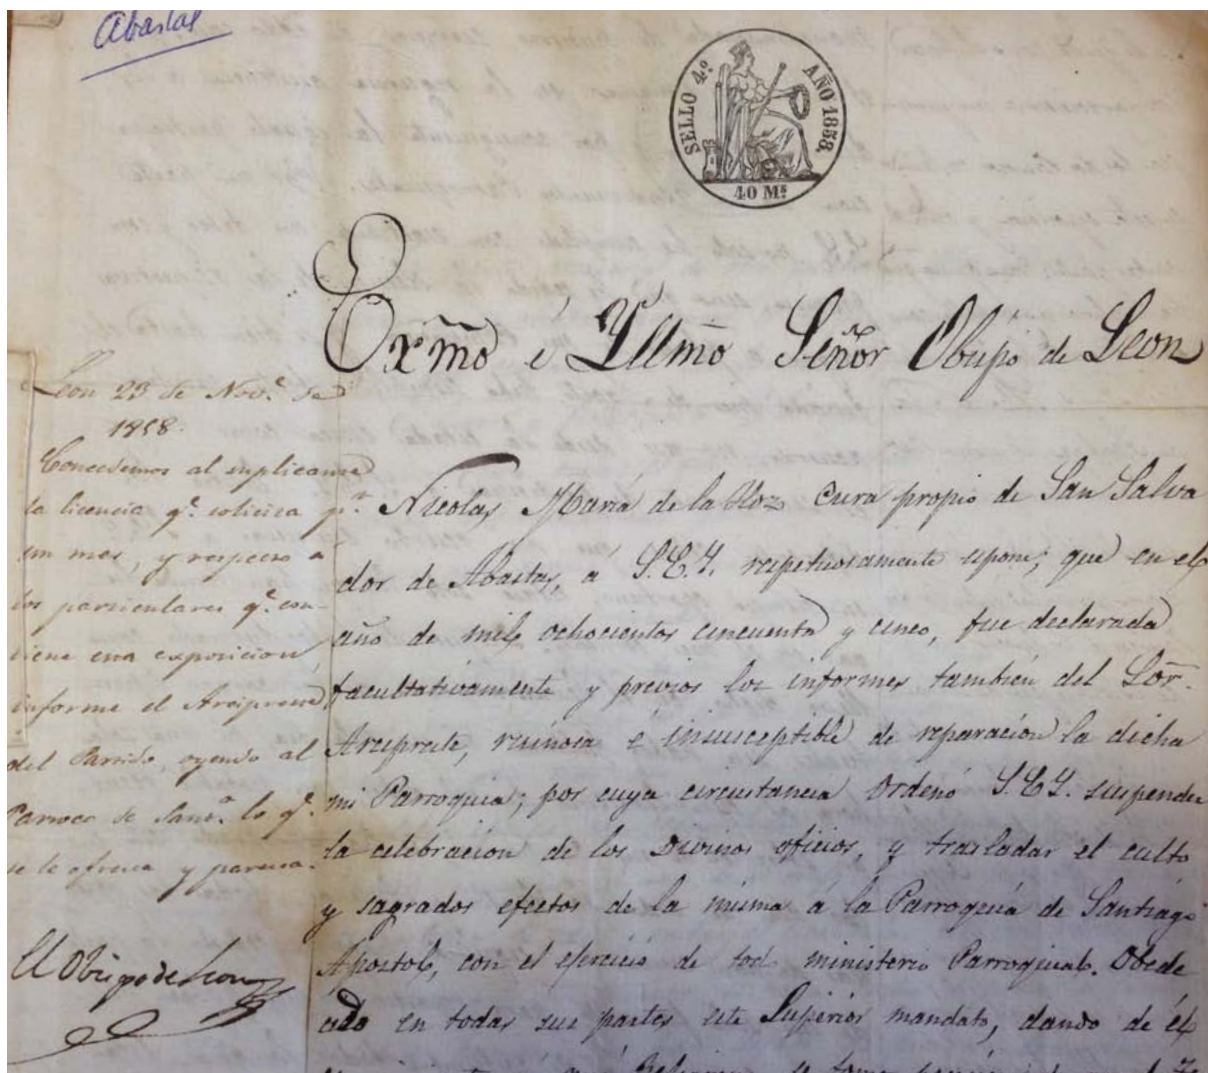 Abastas
SELLO 4º. AÑO 1858.
40 Ms.
Exmo é Yllmo Señor Obispo de Leon
Leon 23 de Nov.e de
1858.
Concedemos al suplicante
la licencia q.e solicita p.r
un mes, y respecto a
los particulares q.e con-
tiene esta exposicion,
informe el Arcipreste
del Partido, oyendo al
Parroco de Sant.o lo q.e
se le ofrezca y parezca.
El Obispo de Leon
Nicolas Maria de la Hoz Cura propio de San Salva
dor de Abastas, a S.E.Y. respetuosamente espone; que en el
año de mil ochocientos cincuenta y cinco, fue declarada
facultativamente y previos los informes también del Sor.
Arcipreste, ruinosa é insusceptible de reparación la dicha
mi Parroquia; por cuya circustancia ordenó S.E.Y. suspender
la celebracion de los Divinos oficios, y trasladar el culto
y sagrados efectos de la misma á la Parroquia de Santiago
Apostol, con el ejercicio de todo ministerio Parroquial. Obede
cido en todas sus partes este Superior mandato, dando de él